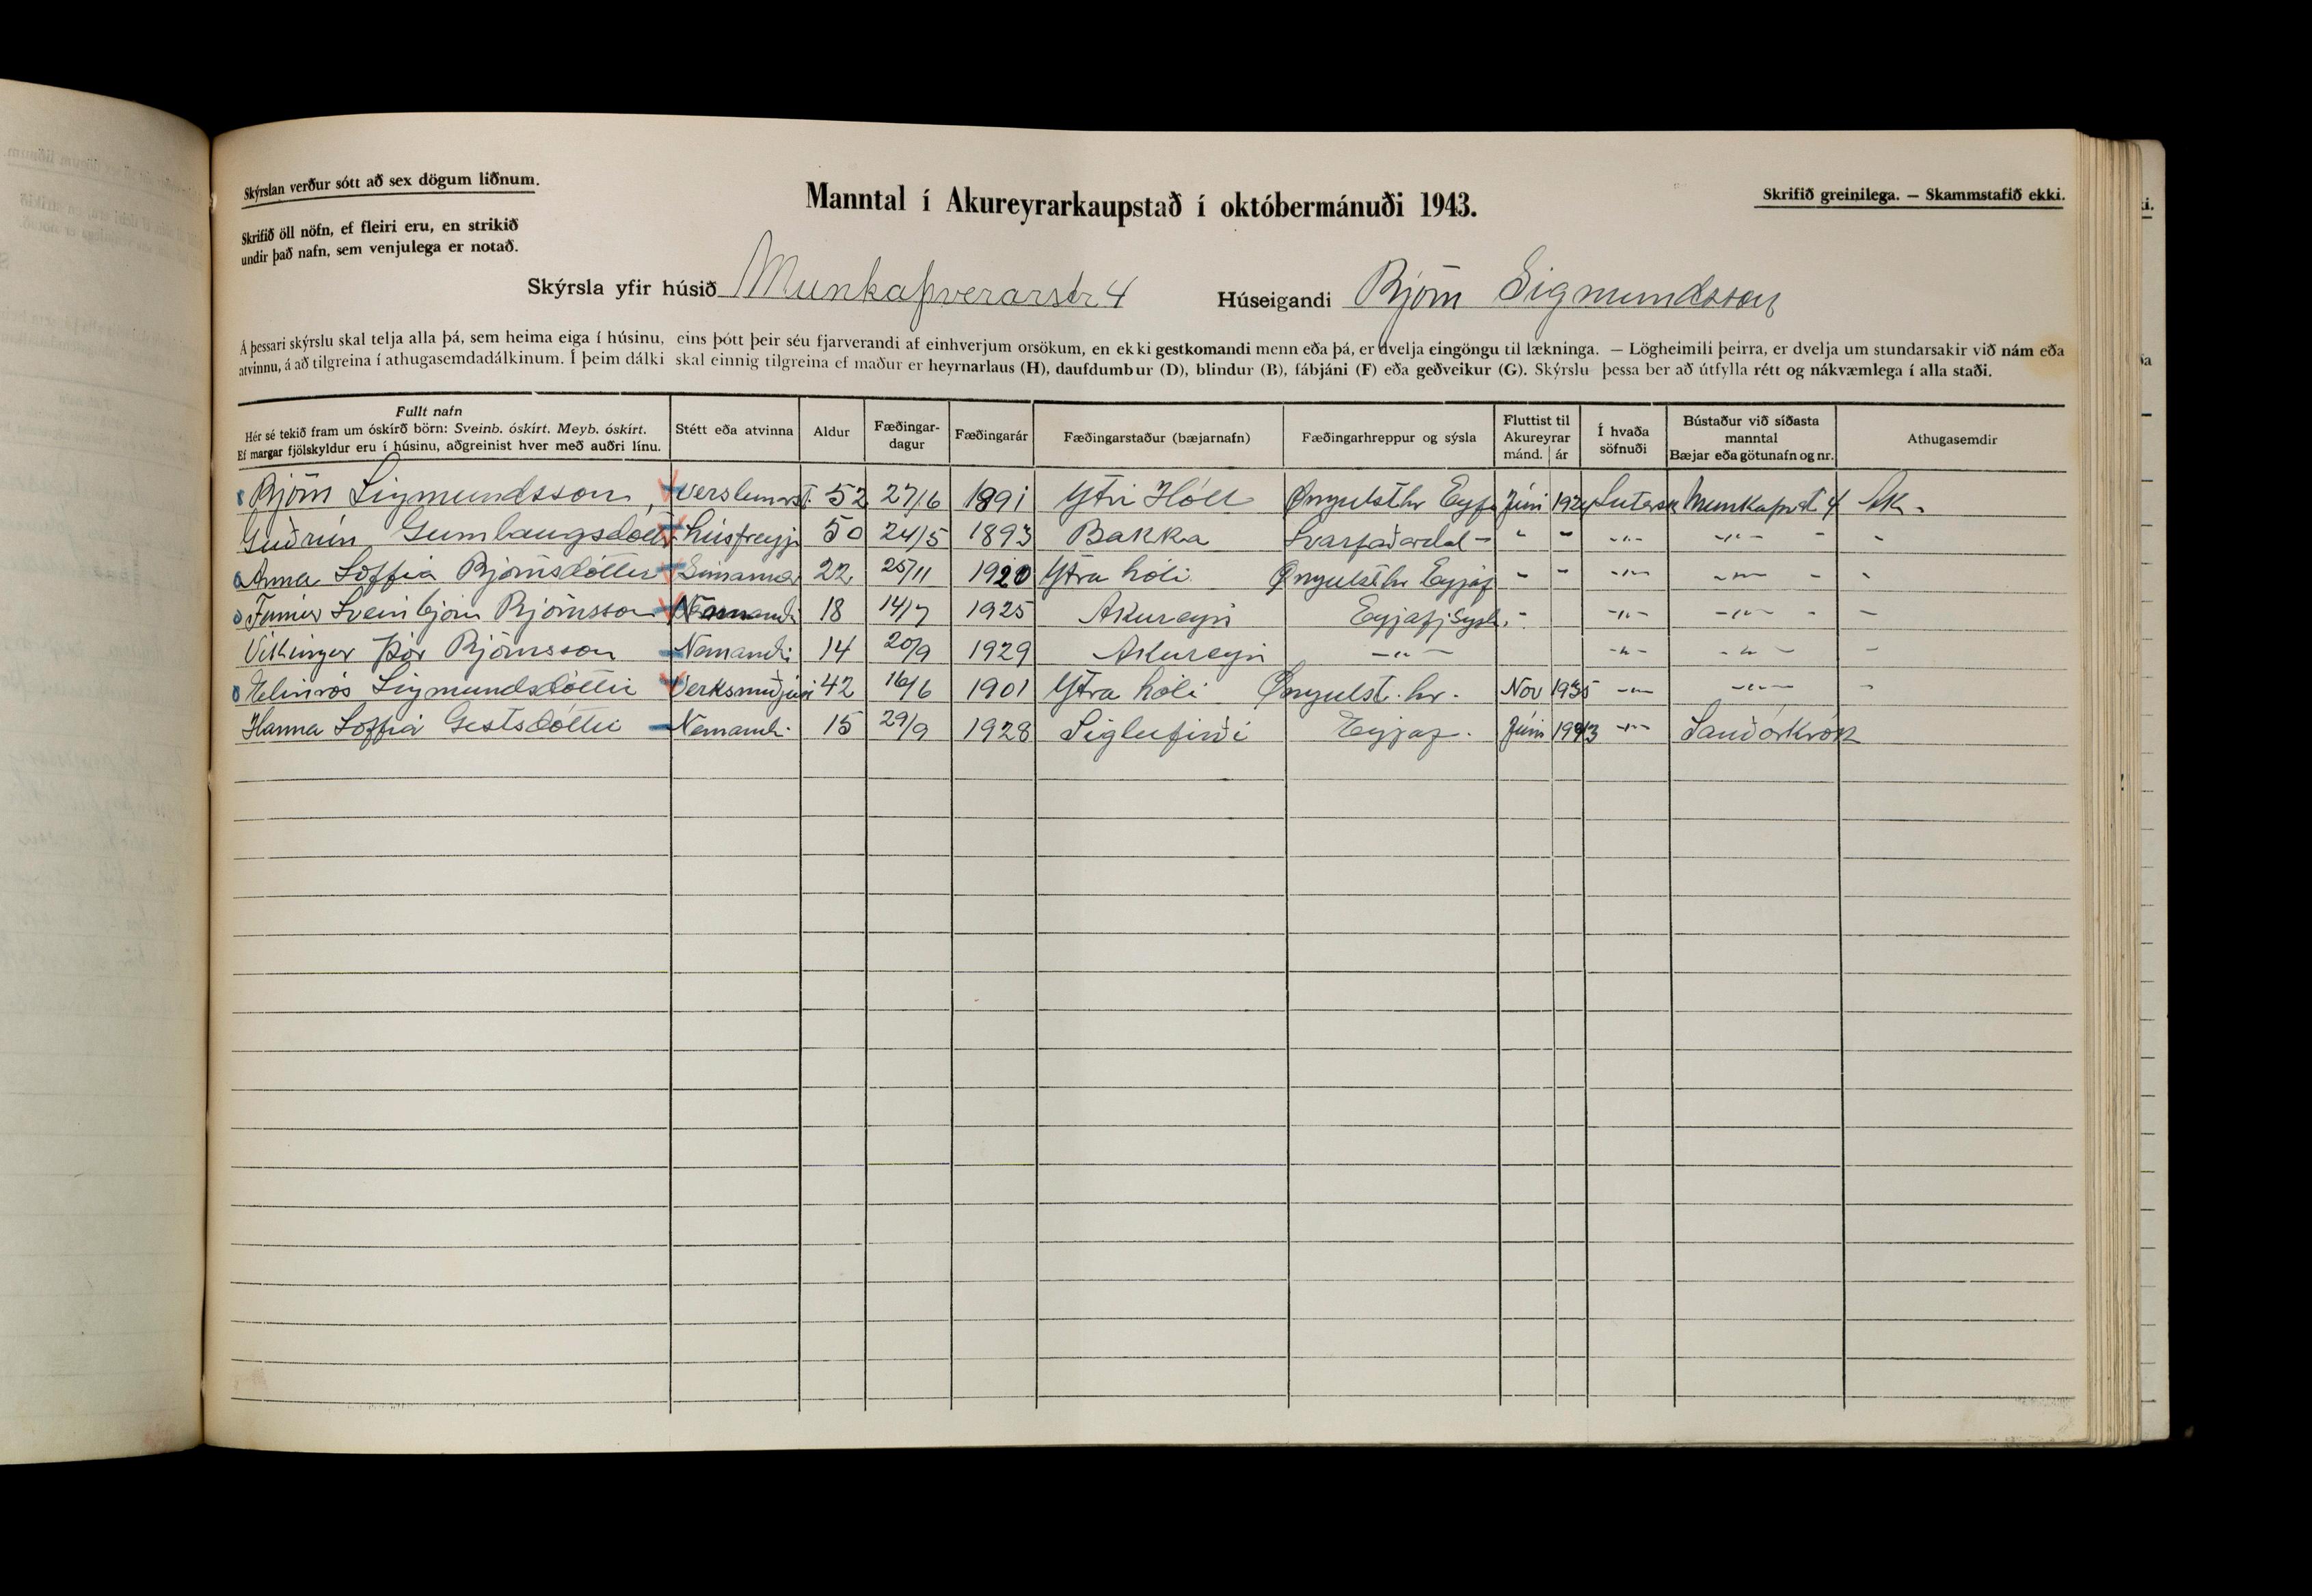 Skýrslan verður sótt að sex dögum liðnum.
Skrifið öll nöfn, ef fleiri eru, en strikið
undir það nafn, sem venjulega er notað.
Manntal í Akureyrarkaupstað í októbermánuði 1943.
Skrifið greinilega. — Skammstafið ekki.
Skýrsla yfir húsið Munkaþverarstr 4 Húseigandi Björn Sigmundsson
Á þessari skýrslu skal telja alla þá, sem heima eiga í húsinu, eins þótt þeir séu fjarverandi af einhverjum orsökum, en ekki gestkomandi menn eða þá, er dvelja eingöngu til lækninga. — Lögheimili þeirra, er dvelja um stundarsakir við nám eða
atvinnu, á að tilgreina í athugasemdadálkinum. Í þeim dálki skal einnig tilgreina ef maður er heyrnarlaus (H), daufdumbur (D), blindur (B), fábjáni (F) eða geðveikur (G). Skýrslu þessa ber að útfylla rétt og nákvæmlega í alla staði.
Fullt nafn
Hér sé tekið fram um óskírð börn: Sveinb. óskírt. Meyb. óskírt.
Ef margar fjölskyldur eru í húsinu, aðgreinist hver með auðri línu.
Stétt eða atvinna
Aldur
Fæðingar-
dagur
Fæðingarár
Fæðingarstaður (bæjarnafn)
Fæðingarhreppur og sýsla
Fluttist til
Akureyrar
mánd. ár
Í hvaða
söfnuði
Bústaður við síðasta
manntal
Bæjar eða götunafn og nr.
Athugasemdir
Björn Sigmundsson 52 27/6 1891 Ytri Hóll Öngulsthr Eyf Júní Munkaþvst. 4 Ak.
Guðrún Gunnlaugsdótt Húsfreyja 50 24/5 1893 Bakka Svarfaðardal - - - -"- -"- - -
Anna Soffia Björnsdóttir 22 25/11 1920 Ytra hóli Öngulsthr Eyjaf - - -"- -"- - -
Finnur Sveinbjörn Björnsson Nemandi 18 14/7 1925 Akureyri Eyjafj.Sysl. - -"- -"- - -
Vikingur Þór Björnsson Nemandi 14 20/9 1929 Akureyri -"- -"- -"- -
Sigmundsdóttir 42 16/6 1901 Ytra hóli Öngulst. hr. Nov 1935 -"- -"- -
Hanna Soffía Gestsdóttir Nemandi 15 29/9 1928 Siglufirði Eyjaf. Júní 1943 -"- Sauðárkrók